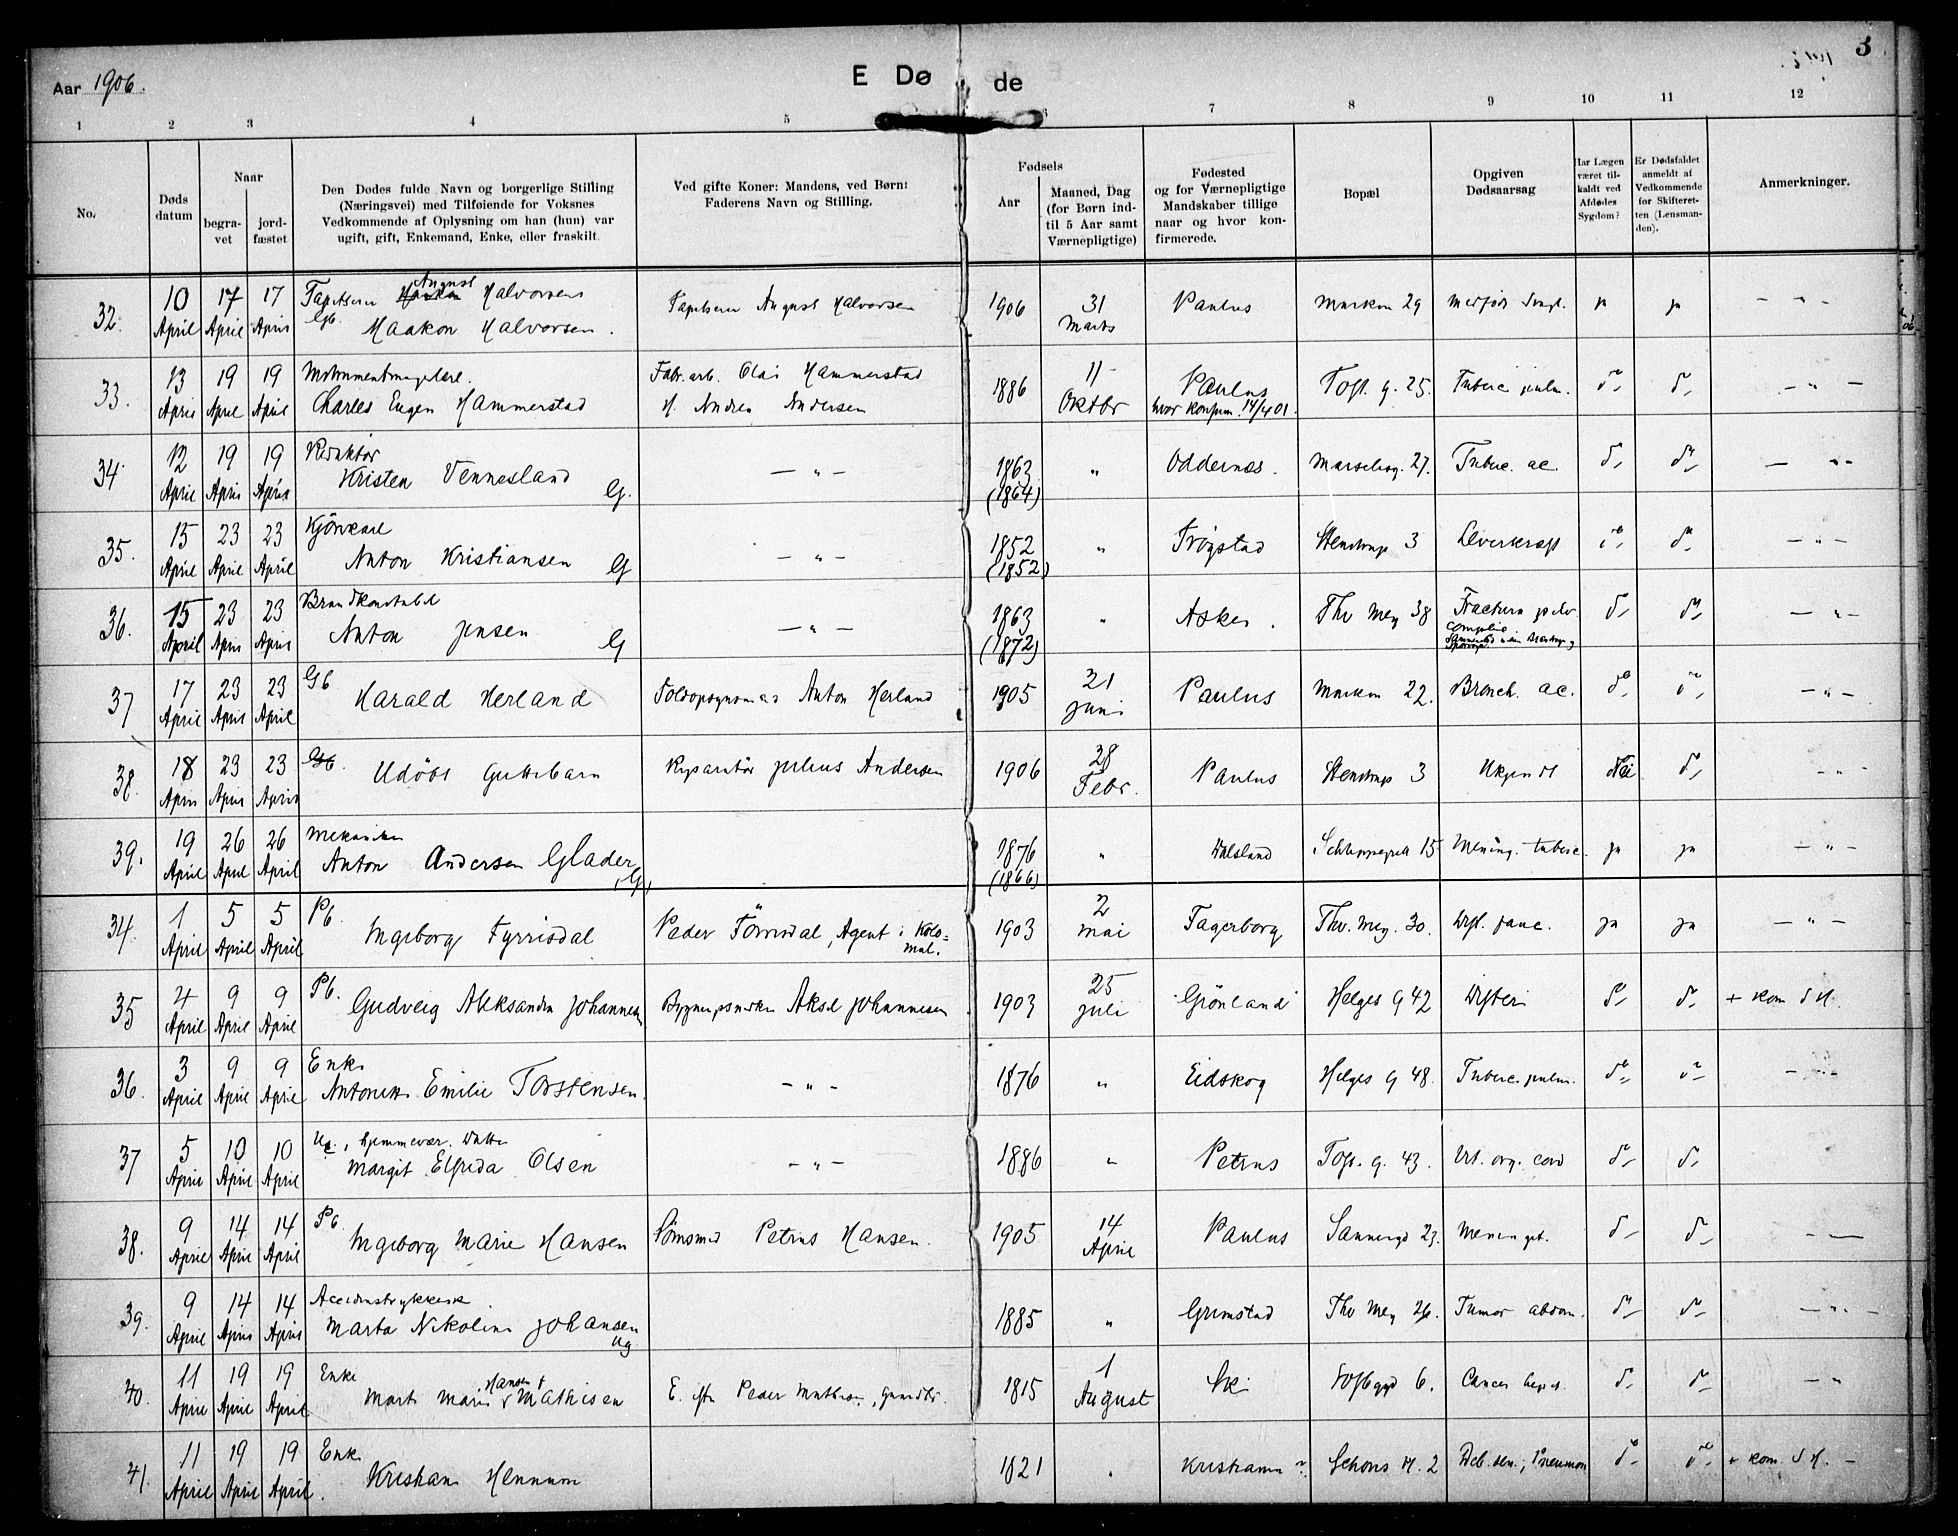 Aar 1906.
E Dø de
3
1 2 3 4 5 6 7 8 9 10 11 12
No.
Døds datum
Naar
begra-vet
jord-fæstet
Den Dødes fulde Navn og borgerlige Stilling
(Næringsvei) med Tilføiende for Voksnes
Vedkommende af Oplysning om han (hun) var
ugift, gift, Enkemand, Enke, eller fraskilt.
Ved gifte Koner: Mandens, ved Børn:
Faderens Navn og Stilling.
Fødsels
Aar
Maaned, Dag
(for Børn ind-
til 5 Aar samt
Værnepligtige)
Fødested
og for Værnepligtige
Mandskaber tillige
naar og hvor kon-
firmerede.
Bopæl
Opgiven
Dødsaarsag
Har Lægen
været til-
kaldt ved
Afdødes
Sygdom?
Er Dødsfaldet
anmeldt af
Vedkommende
for Skifteret-
ten (Lensman-
den).
Anmerkninger.
32. 10 April 17 April 17 April August Halvorsen
Gb. Haakon Halvorsen. August Halvorsen 1906 31 Marts Paulus 29 ja ja — „ —
33. 13 April 19 April 19 April
Charles Eugen Hammerstad Fabr.arb. Olai Hammerstad
H. Andrea Andersen 1886 11 Oktbr Paulus
hvor konfirm. 14/4 01. Toft. g. 25. Tuberc. pulm. do do — „ —
34. 12 April 19 April 19 April Redaktør
Kristen Vennesland G. — „ — 1863 (1864) „ Oddernes. 27. Tuberc. ac. do do — „ —
35. 15 April 23 April 23 April Kjørekarl
Anton Kristiansen G — „ — 1852 (1852) „ Trøgstad Stenstrup 3 Leverkræft do do — „ —
36. 15 April 23 April 23 April Brandkonstabel
Anton Jensen G — „ — 1863 (1872) „ Asker. Thv Mey 38 Fractura
complic do do — „ —
37 17 April 23 April 23 April Gb Harald Herland Anton Herland 1905 21 Juni Paulus 22. Bronch. ac. do do — „ —
38. 18 April 23 April 23 April Gb. Udøbt Guttebarn Reparatør Julius Andersen 1906 28 Febr. Paulus Stenstrup 3 Ukjendt Nei do — „ —
39. 19 April 26 April 26 April Mekaniker
Anton Andersen Glader, G, 1876 (1866) „ Dalsland Schleppegrell 15 Mening. tuberc. ja ja — „ —
34. 1 April 5 April 5 April Pb. Ingeborg Tyrrisdal Peder Törrisdal, Agent i Kolo=
nial. 1903 2 Mai Fagerborg Thv. Mey. 30. ja ja — „ —
35 4 April 9 April 9 April Pb. Gudveig Aleksandra Johannesen Aksel Johannesen 1903 25 Juli Grønland Helges g 42 Difteri do do + kom. S H.
36. 3 April 9 April 9 April Enke
Antonette Emilie Torstensen. — „ — 1876 „ Eidskog Helges g 48. Tuberc. pulm. do do — „ —
37 5 April 10 April 10 April Ug., hjemmevær. Datter
Margit Elfrida Olsen — „ — 1886 „ Petrus Toft. g. 43. Vit. org. cord do do
38. 9 April 14 April 14 April Pb. Ingeborg Marie Hansen Petrus Hansen. 1905 14 April Paulus Sannergd 23. Meningit. do do — „ —
39. 9 April 14 April 14 April
Marta Nikoline Johansen Ug 1885 „ Grimstad Thv Mey 26. Tumor abdom. do do — „ —
40. 11 April 19 April 19 April Enke
Marte Marie Hansen Mathisen E. eft. Peder Mathisen, 1815 1 August Ski Toftegd 6. Cancer hepat. do do — „
41. 11 April 19 April 19 April Enke
Kristiane Hennum 1821 „ Kristiania ?. Schous Pl. 2 Deb. sen., Pneumon do do + kom. S H. —